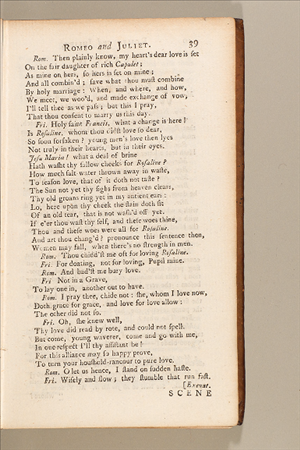 ROMEO and JULIET. 39
Rom. Then plainly know, my heart's dear love is set
On the fair daughter of rich Capulet;
As mine on hers, so hers is set on mine;
And all combin'd; save what thou must combine
By holy marriage: When, and where, and how,
We meet, we woo'd, and made exchange of vow,
I'll tell thee as we pass; but this I pray,
That thou consent to marry us this day.
Fri. Holy saint Francis, what a change is here!
Is Rosaline, whom thou didst love so dear,
So soon forsaken? young men's love then lyes
Not truly in their hearts, but in their eyes.
Jesu Maria! what a deal of brine
Hath washt thy sallow cheeks for Rosaline?
How much salt water thrown away in waste,
To season love, that of it doth not taste?
The Sun not yet thy sighs from heaven clears,
Thy old groans ring yet in my antient ears:
Lo, here upon thy cheek the stain doth sit
Of an old tear, that is not wash'd off yet.
If e'er thou wast thy self, and these woes thine,
Thou and these woes were all for Rosaline.
And art thou chang'd? pronounce this sentence then,
Women may fall, when there's no strength in men.
Rom. Thou chidd'st me oft for loving Rosaline.
Fri. For doating, not for loving, Pupil mine.
Rom. And bad'st me bury love.
Fri Not in a Grave,
To lay one in, another out to have.
Rom. I pray thee, chide not: she, whom I love now,
Doth grace for grace, and love for love allow:
The other did not so.
Fri. Oh, she knew well,
Thy love did read by rote, and could not spell.
But come, young waverer, come and go with me,
In one respect I'll thy assistant be:
For this alliance may so happy prove,
To turn your houshold-rancour to pure love.
Rom. O let us hence, I stand on sudden haste.
Fri. Wisely and slow; they stumble that run fast.
[Exeunt.
SCENE